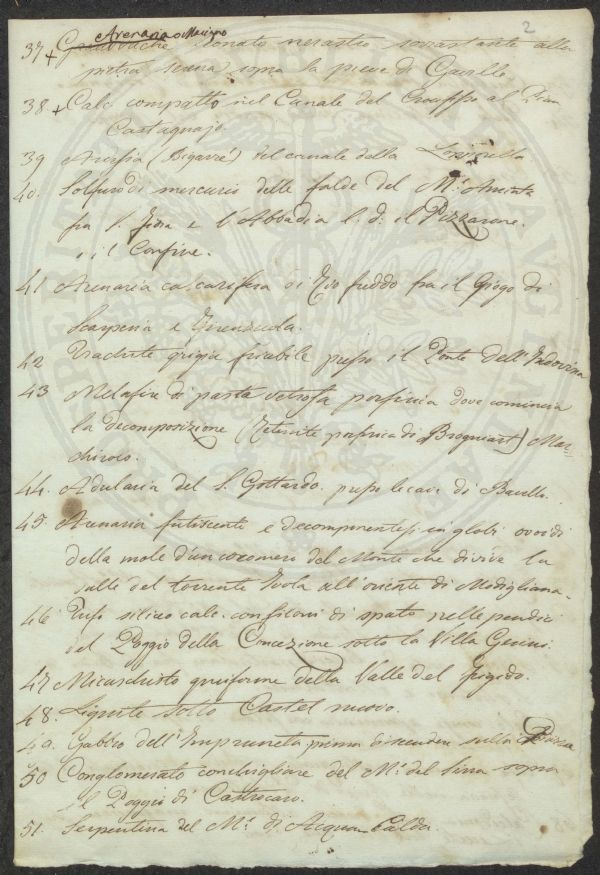 2
Arenaria o Macigno
37 + Grauwache Donato nerastro sovrastante alla
pietra serena sopra la pieve di Gaville
38 + Calc compatto nel Canale del al Pian
Castagnajo.
39 Arursia (Bigarré) del canale della
40. Solfuro di mercurio delle falde del M.e Amiata
fra S. Fiora e l'Abbadia l. d. il Pizzarone.
o il Confine.
41 Arenaria calcarifera di Rio freddo fra il Giogo di
Scarperia e Firenzuola.
42 Trachite grigia friabile presso il Ponte dell'Indovina
43 Melafiro di pasta vetrosa porfirica dove comincia
la decomposizione (Retinite porfirica di Brogniart) Mar=
chirolo.
44. Adularia del S. Gottardo. presso le cave di Baveno.
45. Arenaria fatiscente e decomponentesi in globi ovoidi
della mole d'un cocomero del Monte che divide la
valle del torrente Ivola all'oriente di Modigliana.
46 Tufo siliceo calc. con filoni di spato nelle pendici
del Poggio della Concezione sotto la Villa
47 Micaschisto graniforme della Valle del Frigido.
48. Lignite sotto Castel nuovo.
49. Gabbro dell'Impruneta prima di scendere sulla Piazza
50 Conglomerato conchigliare del M.e del sopra
il Poggio di Castrocaro.
51. Serpentina del M.e di Acqua Calda.